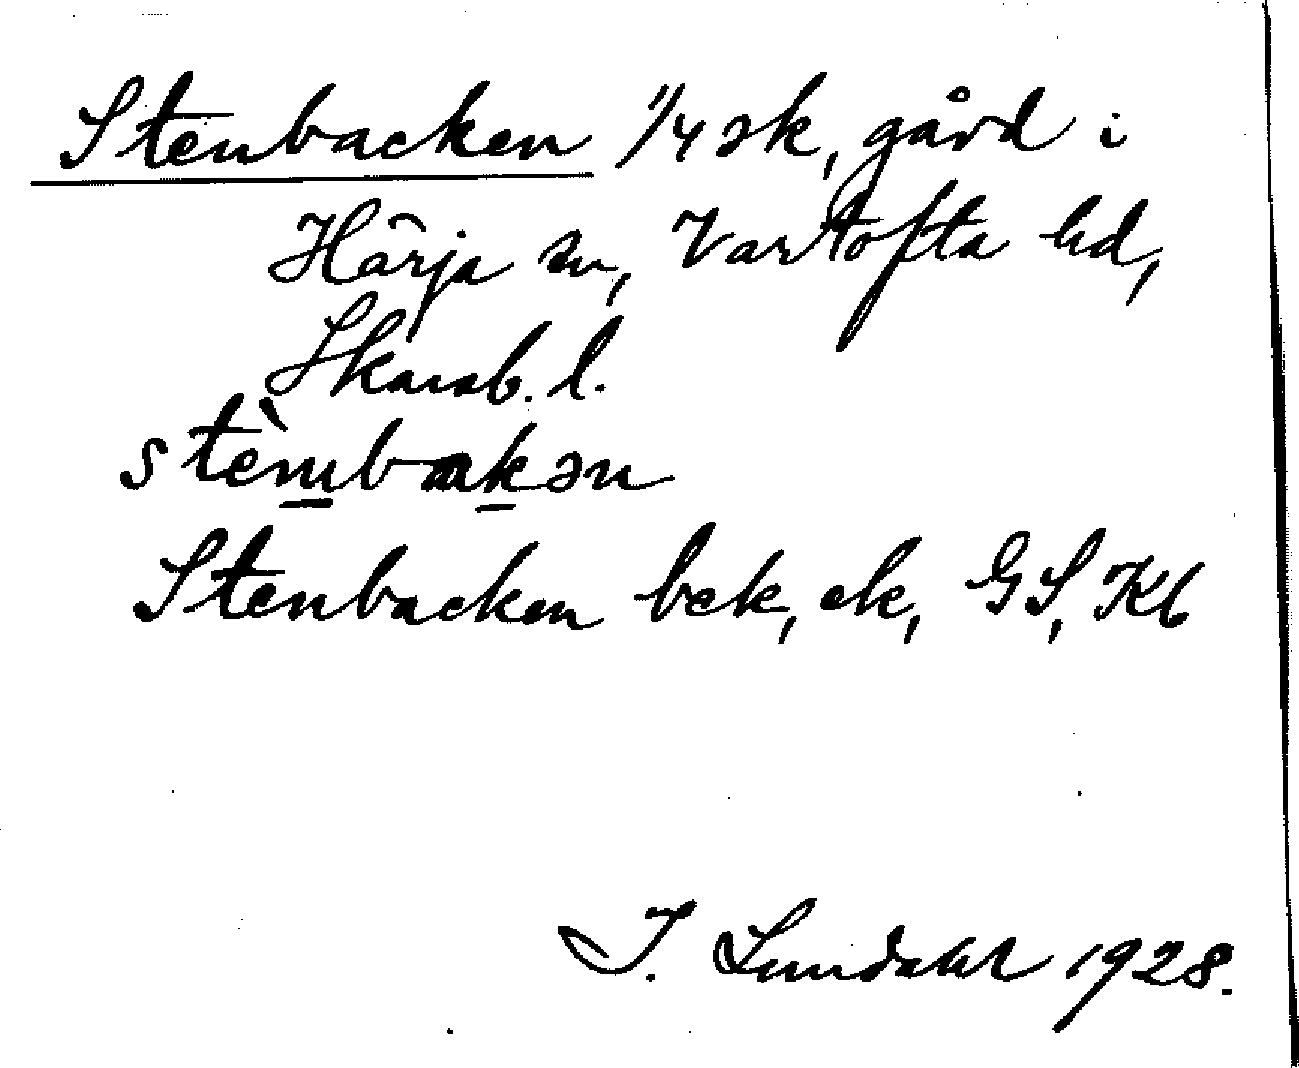 Stenbacken 1/4 sk, gård i
Härja sn, Vartofta hd,
Skarab. l.
stèmbakən
Stenbacken bek, ek, GS, Kb
I. Lundahl 1928.